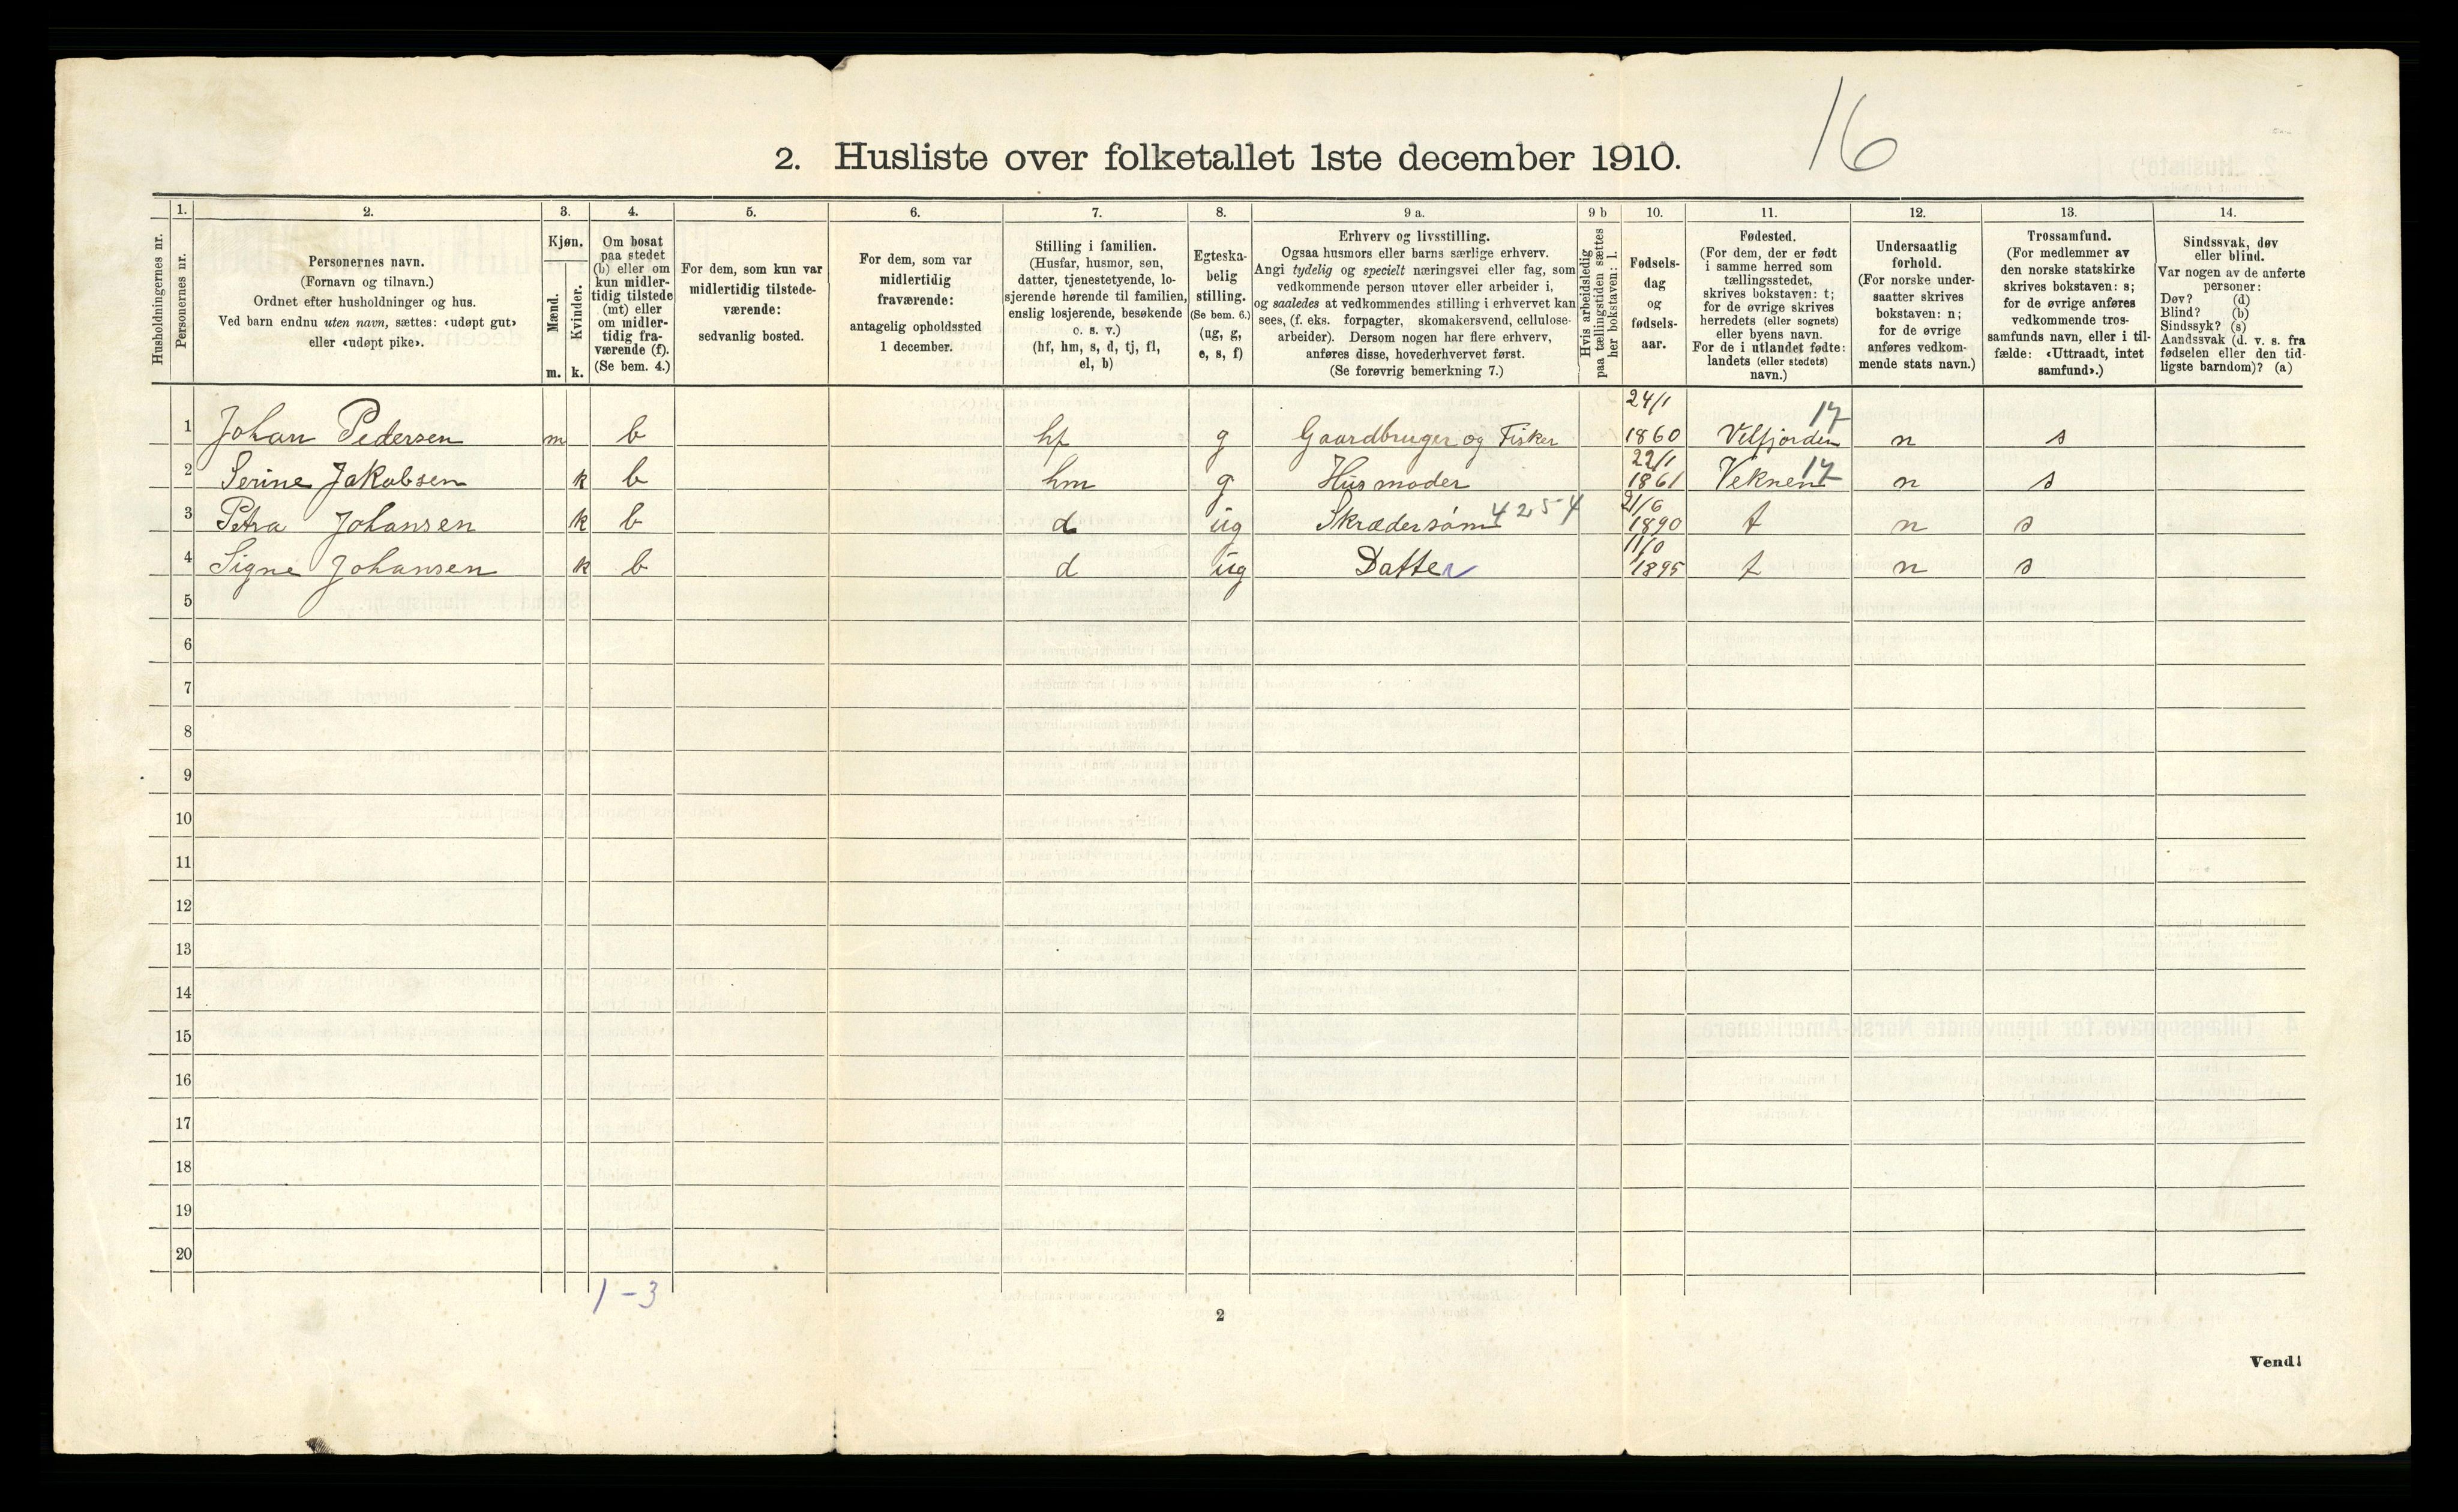 16
2. Husliste over folketallet 1ste december 1910.
Husholdningernes nr.
1.
Personernes nr.
2.
Personernes navn.
(Fornavn og tilnavn.)
Ordnet efter husholdninger og hus.
Ved barn endnu uten navn, sættes: «udøpt gut»
eller «udøpt pike».
3.
Kjøn.
Mænd.
Kvinder.
m. k.
4.
Om bosat
paa stedet
(b) eller om
kun midler-
tidig tilstede
(mt) eller
om midler-
tidig fra-
værende (f).
(Se bem. 4.)
5.
For dem, som kun var
midlertidig tilstede-
værende:
sedvanlig bosted.
6.
For dem, som var
midlertidig
fraværende:
antagelig opholdssted
1 december.
7.
Stilling i familien.
(Husfar, husmor, søn,
datter, tjenestetyende, lo-
sjerende hørende til familien,
enslig losjerende, besøkende
o. s. v.)
(hf, hm, s, d, tj, fl,
el, b)
8.
Egteska-
belig
stilling.
(Se bem. 6.)
(ug, g,
e, s, f)
9 a.
Erhverv og livsstilling.
Ogsaa husmors eller barns særlige erhverv.
Angi tydelig og specielt næringsvei eller fag, som
vedkommende person utøver eller arbeider i,
og saaledes at vedkommendes stilling i erhvervet kan
sees, (f. eks. forpagter, skomakersvend, cellulose-
arbeider). Dersom nogen har flere erhverv,
anføres disse, hovederhvervet først.
(Se forøvrig bemerkning 7.)
9 b
Hvis arbeidsledig
paa tællingstiden sættes
her bokstaven: l.
10.
Fødsels-
dag
og
fødsels-
aar.
11.
Fødested.
(For dem, der er født
i samme herred som
tællingsstedet,
skrives bokstaven: t;
for de øvrige skrives
herredets (eller sognets)
eller byens navn.
For de i utlandet fødte:
landets (eller stedets)
navn.)
12.
Undersaatlig
forhold.
(For norske under-
saatter skrives
bokstaven: n;
for de øvrige
anføres vedkom-
mende stats navn.)
13.
Trossamfund.
(For medlemmer av
den norske statskirke
skrives bokstaven: s;
for de øvrige anføres
vedkommende tros-
samfunds navn, eller i til-
fælde: «Uttraadt, intet
samfund».)
14.
Sindssvak, døv
eller blind.
Var nogen av de anførte
personer:
Døv? (d)
Blind? (b)
Sindssyk? (s)
Aandssvak (d. v. s. fra
fødselen eller den tid-
ligste barndom)? (a)
1 Johan Pedersen m b hf g Gaardbruger og Fisker 24/1 1860 Velfjorden 17 n s
2 Serine Jakobsen k b hm g Husmoder 22/1 1861 Veknen 17 n s
3 Petra Johansen k b d ug Skrædersøm 4254 21/6 1890 t n s
4 Signe Johansen k b d ug Datter 1895 t n s
5
6
7
8
9
10
11
12
13
14
15
16
17
18
19
20
1-3
2
Vend!